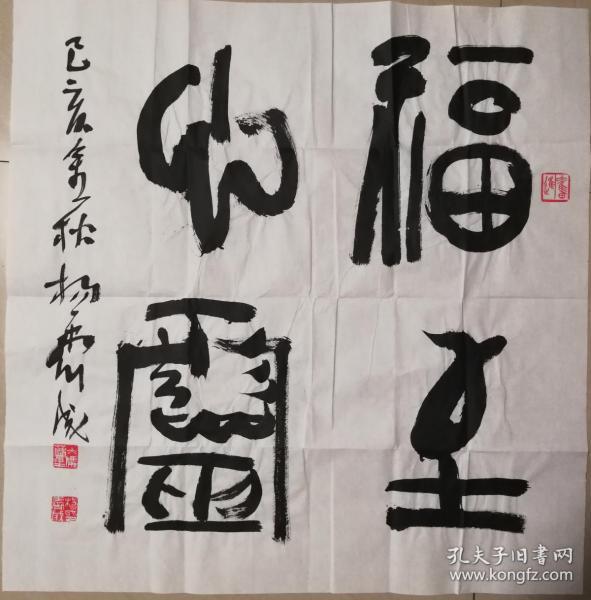 福至
心靈
己亥金秋杨
孔夫子旧书网
www.kongfz.com